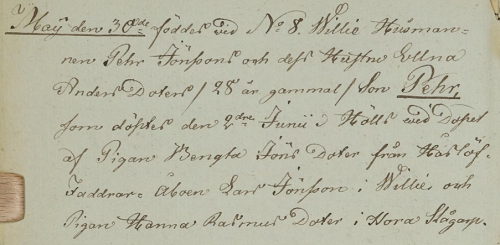 Maÿ den 30de föddes vid No 8. Willie Husman-
nen Pehr Jönssons och dess Hustru Ellna
Anders Doters / 28 år gammal / Son Pehr,
som döptes den 2dre Junii i Hölls wed Dopet
af Pigan Bengta Jöns Doter från Haslöf
Faddrar= Åboen Lars Jönsson i Willie och
Pigan Hanna Rasmus Doter i Hora Slågarp.